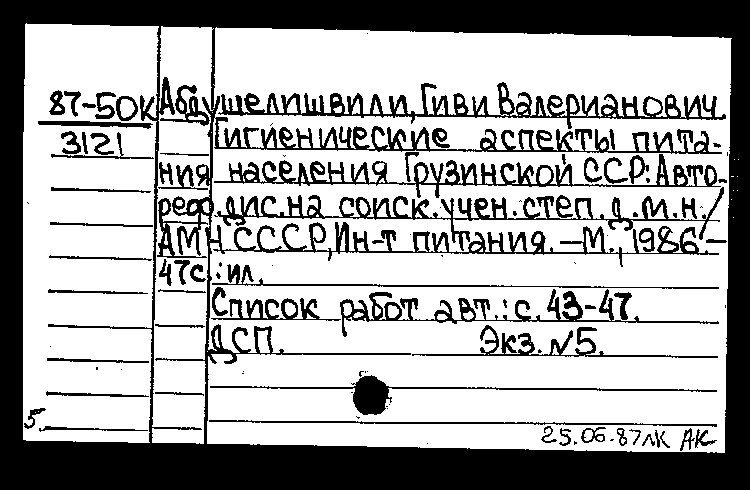 87-50К Абдушелишвили, Гиви Валерианович.
3121 Гигиенические аспекты пита-
ния населения Грузинской ССР: Авто-
реф. дис. на соиск. учен. степ. д. м. н. /
АМН СССР, Ин-т питания. — М., 1986. —
47 с. : ил.
Список работ авт.: с. 43-47.
ДСП. Экз. №5.
5.
25.06.87лк АК